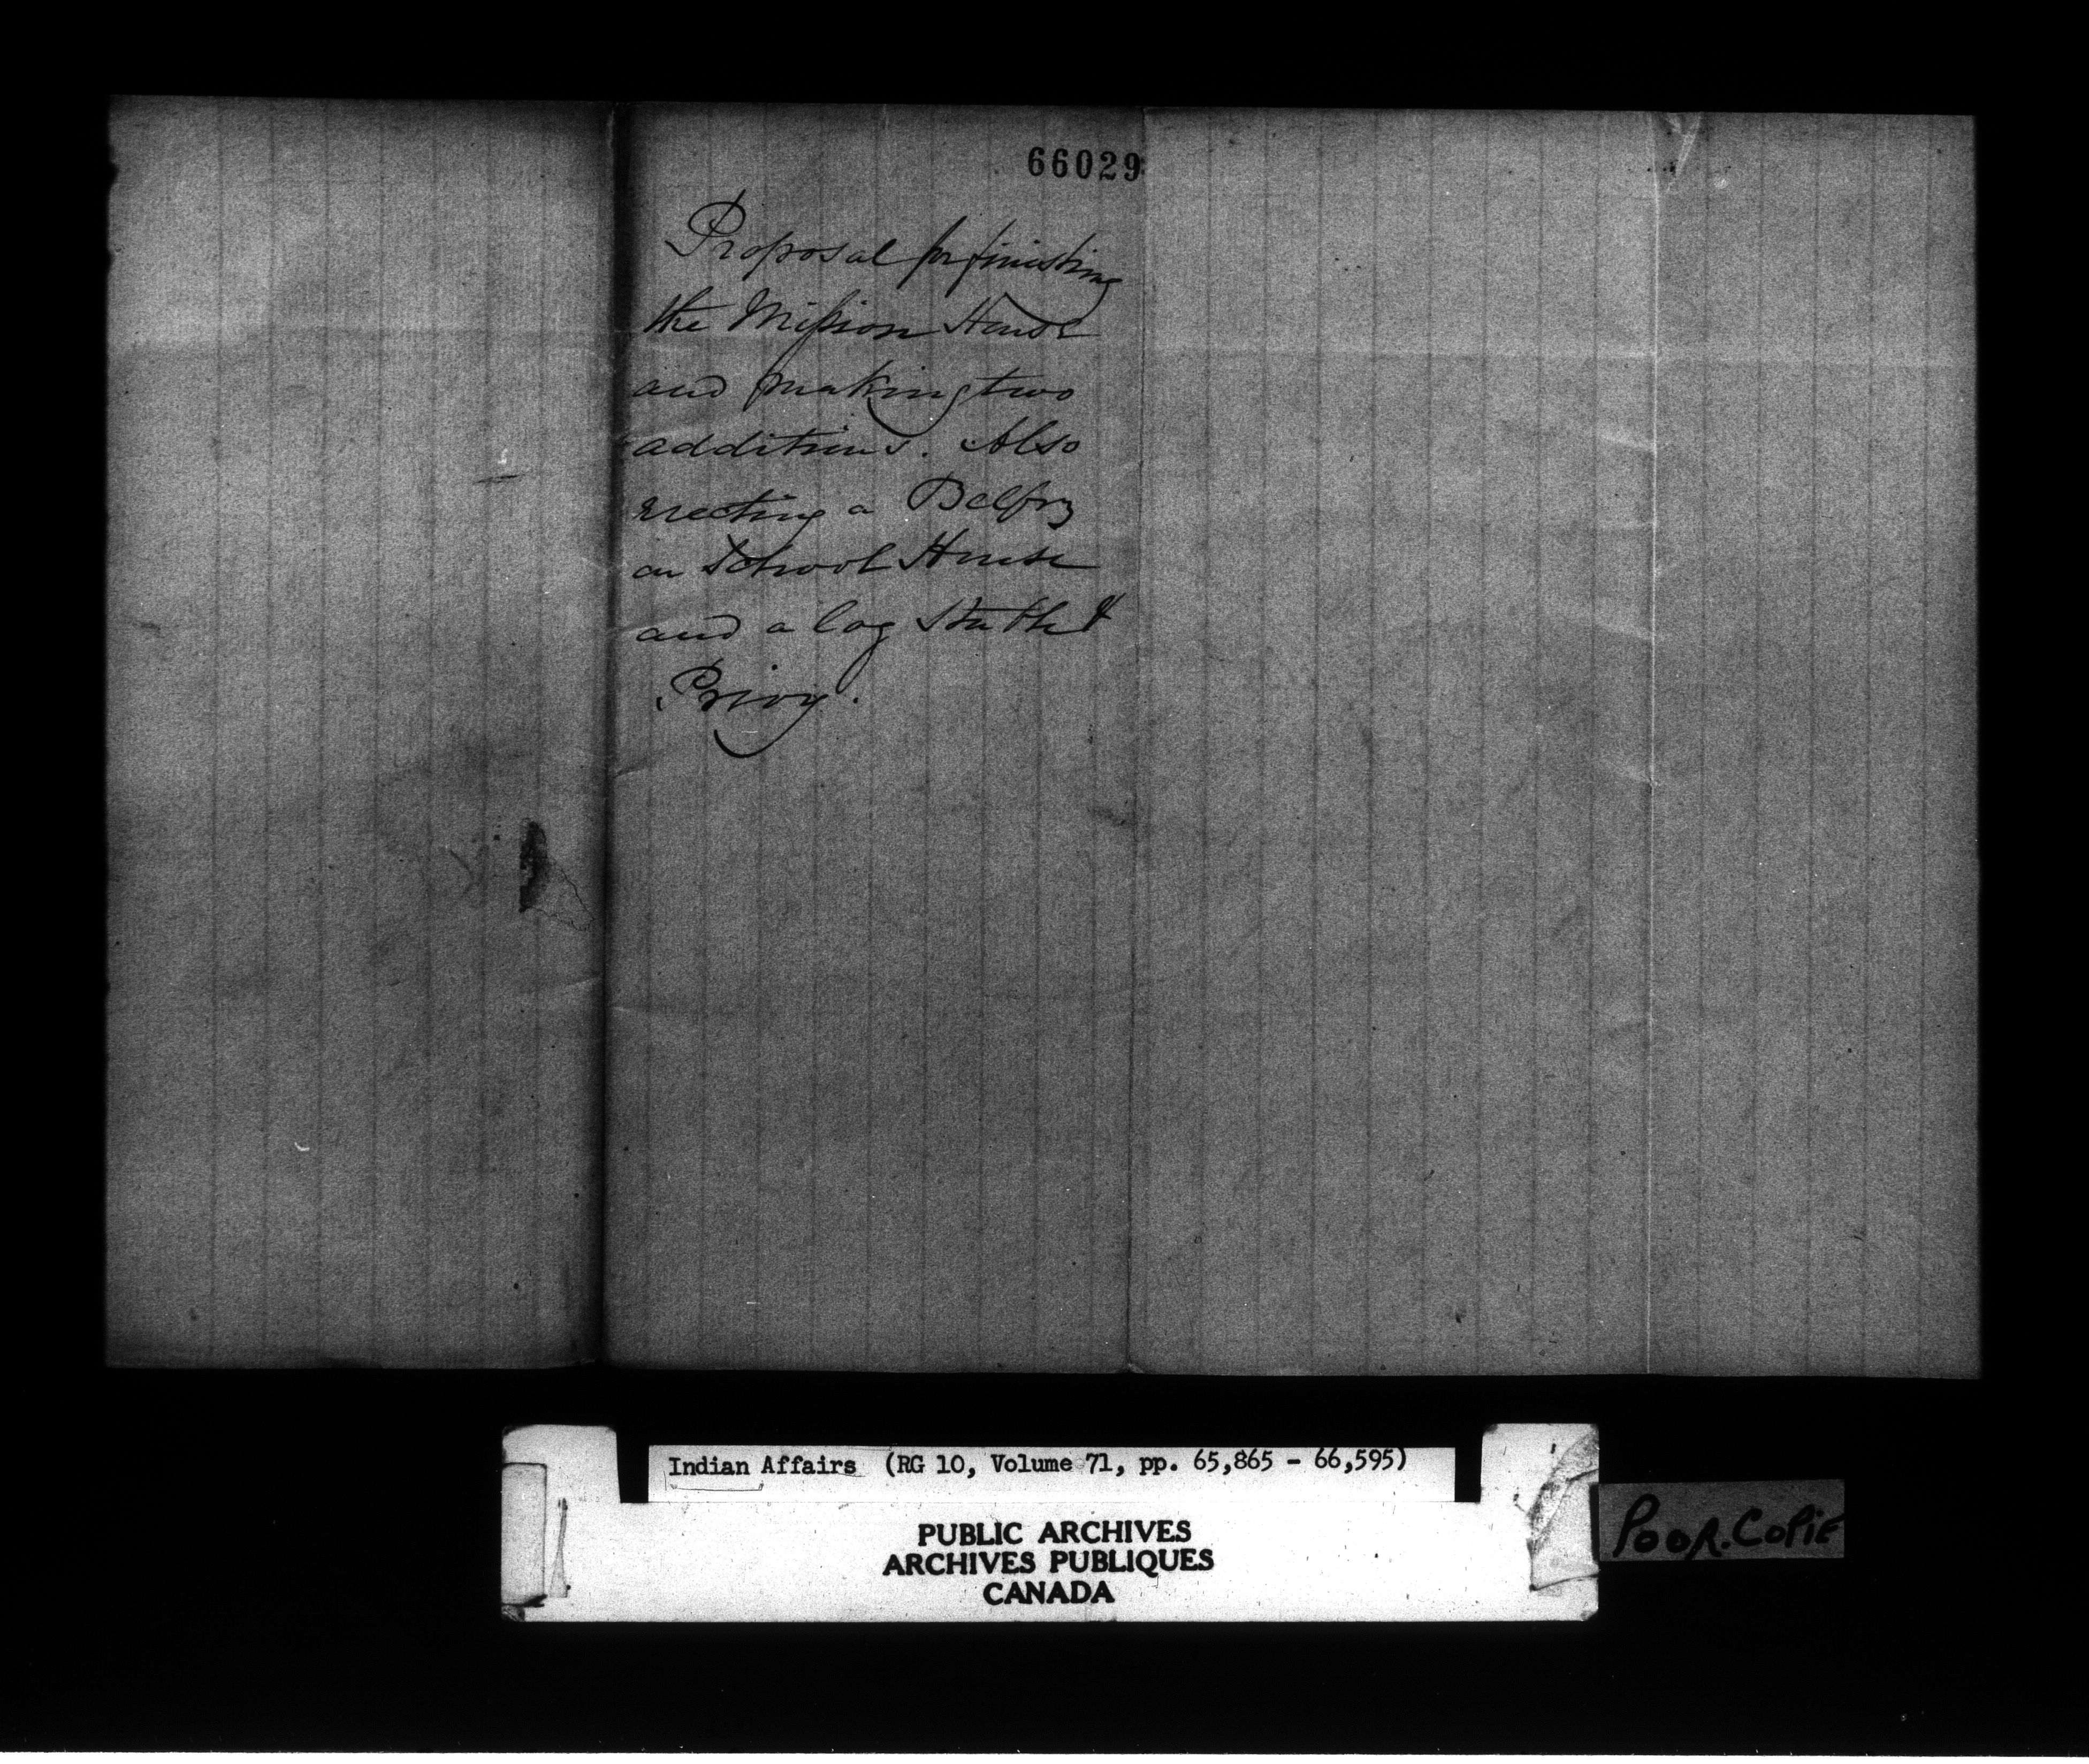 66029
Proposal for finishing
the Mission House
and making two
additions. Also
erecting a Belfry
on School House
and a log Stable &
Privy.
Indian Affairs (RG 10, Volume 71, pp. 65,865 - 66,595)
PUBLIC ARCHIVES
ARCHIVES PUBLIQUES
CANADA
POOR.COPIE